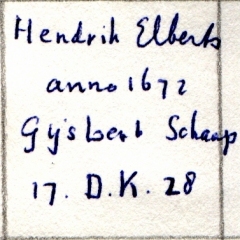 Hendrik Elberts
anno 1672
Gijsbert Schaap
17. D.K. 28